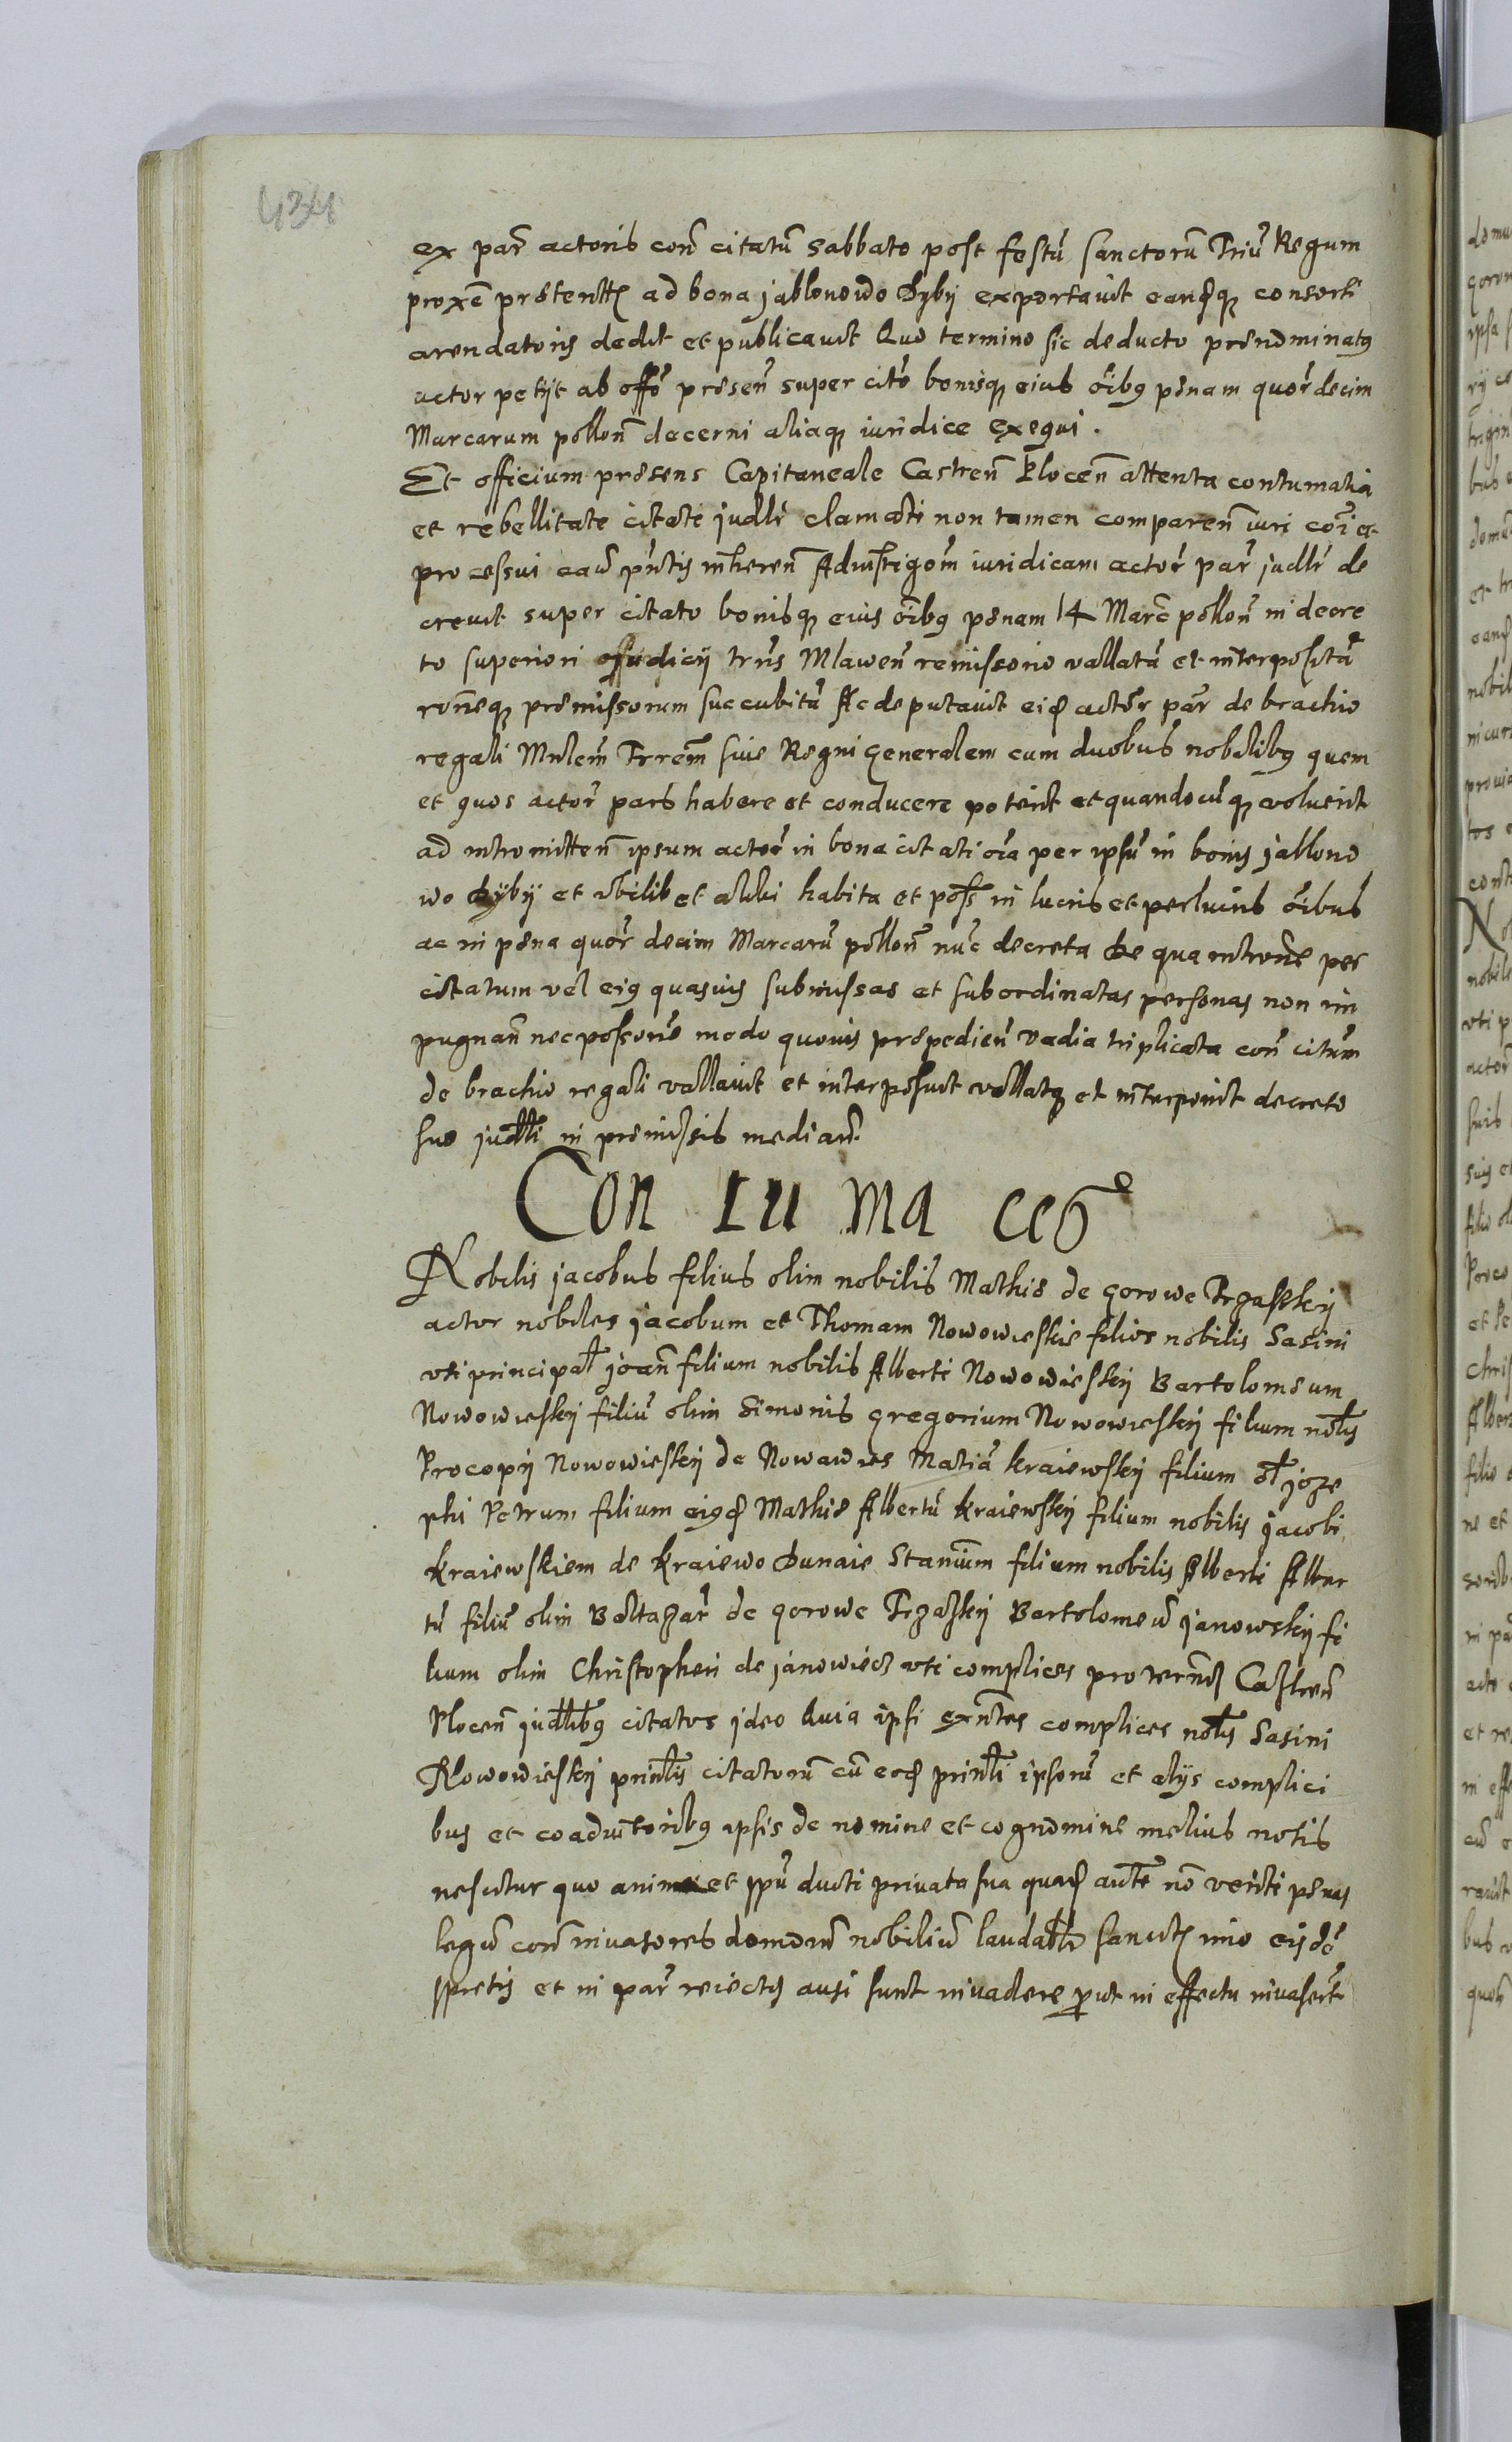 434
ex par̃ actoris coñ citatũ Sabbato post festũ sanctorũ Triũ Regum
proxẽ preteritũ ad bona jablonowo dyby exportavit eandqȝ consorti
arendatoris dedit et publicavit Quo termino sic deducto prenominatꝰ
actor petijt ab offõ preseñ super citõ bonisqȝ eius oĩbꝰ penam quor̃decim
Marcarum polloñ decerni aliaqȝ iuridice exequi .
Et officium presens Capitaneale Castreñ Ploceñ attenta contumatia
et rebellitate citati judlr̃ clamati non tamen compareñ iuri coĩ et
processui caũ pñtis inhereñ Ad instigoñm iuridicam actor̃ par̃ judlr̃ de
crevit super citato bonisqȝ eius oĩbꝰ penam 14 Marc̃ polloñ in decre
to superiori judicij trr̃is Mlaweñ remissorio vallatã et interpositã
roñeqȝ premissorum succubitã Ac deputavit eid actor̃ par̃ de brachio
regali Mnlem̃ Trrem̃ sive Regni generalem cum duobus nobilibꝰ quem
et quos actor̃ pars habere et conducere poterit et quandocũqȝ voluerit
ad intromitteñ ipsum actor̃ in bona citati oĩa per ipsũ in bonis jablono
wo dyby et ubilibet alibi habita et poss̃ in lucris et perlucris oĩbus
ac in pena quor̃ decim Marcarũ polloñ nũc decreta de qua introñe per
citatum vel eiꝰ quasvis submissas et subordinatas personas non im
pugnañ nec possoñe modo quovis prepedieñ vadia triplicata coñ citũm
de brachio regali vallavit et interposuit vallatqȝ et interponit decreto
suo judlli in premissis mediañ.
Con tu ma ces
Nobilis jacobus filius olim nobilis Mathie de gorowe Trzaskij
actor nobiles jacobum et Thomam Nowowieskie filios nobilis Sasini
uti principal̃ joañ filium nobilis Alberti Nowowieskij Bartolomeum
Nowowieskij filiũ olim Simonis gregorium Nowowieskij filium noblis
Procopij Nowowieskij de Nowawies Matiã kraiewskij filium ol̃ joze
phi Petrum filium eiꝰd Mathie Albertũ kraiewskij filium nobilis jacobi
kraiewskiem de kraiewo dunaie Stanium̃ filium nobilis Alberti Alber
tũ filiũ olim Baltazar̃ de gorowe Trzaskij Bartolomeũ janowskij fi
lium olim Christopheri de janowiecz uti complices pro terñis Castreñ
Ploceñ judlibꝰ citatos jdeo Quia ipsi exñtes complices noblis Sasini
Nowowieskij prinlis citatorũ cũ eod prinli ipsorũ et alijs complici
bus et coadiutoribꝰ ipsis de nomine et cognomine melius notis
nescitur quo animo et spũ ducti privata sua quad autẽ nõ veriti penas
legũ coñ invasores domorũ nobiliũ laudablr̃ sancitȝ imo eisdẽ
spretis et in par̃ reiectis ausi sunt invadere put in effectu invaserũt